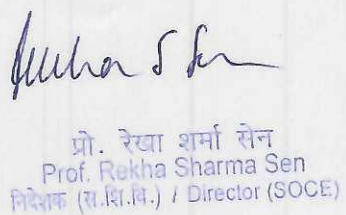 प्रो. रेखा शर्मा सेन
Prof. Rekha Sharma Sen
निदेशक (स.शि.वि.) / Director (SOCE)